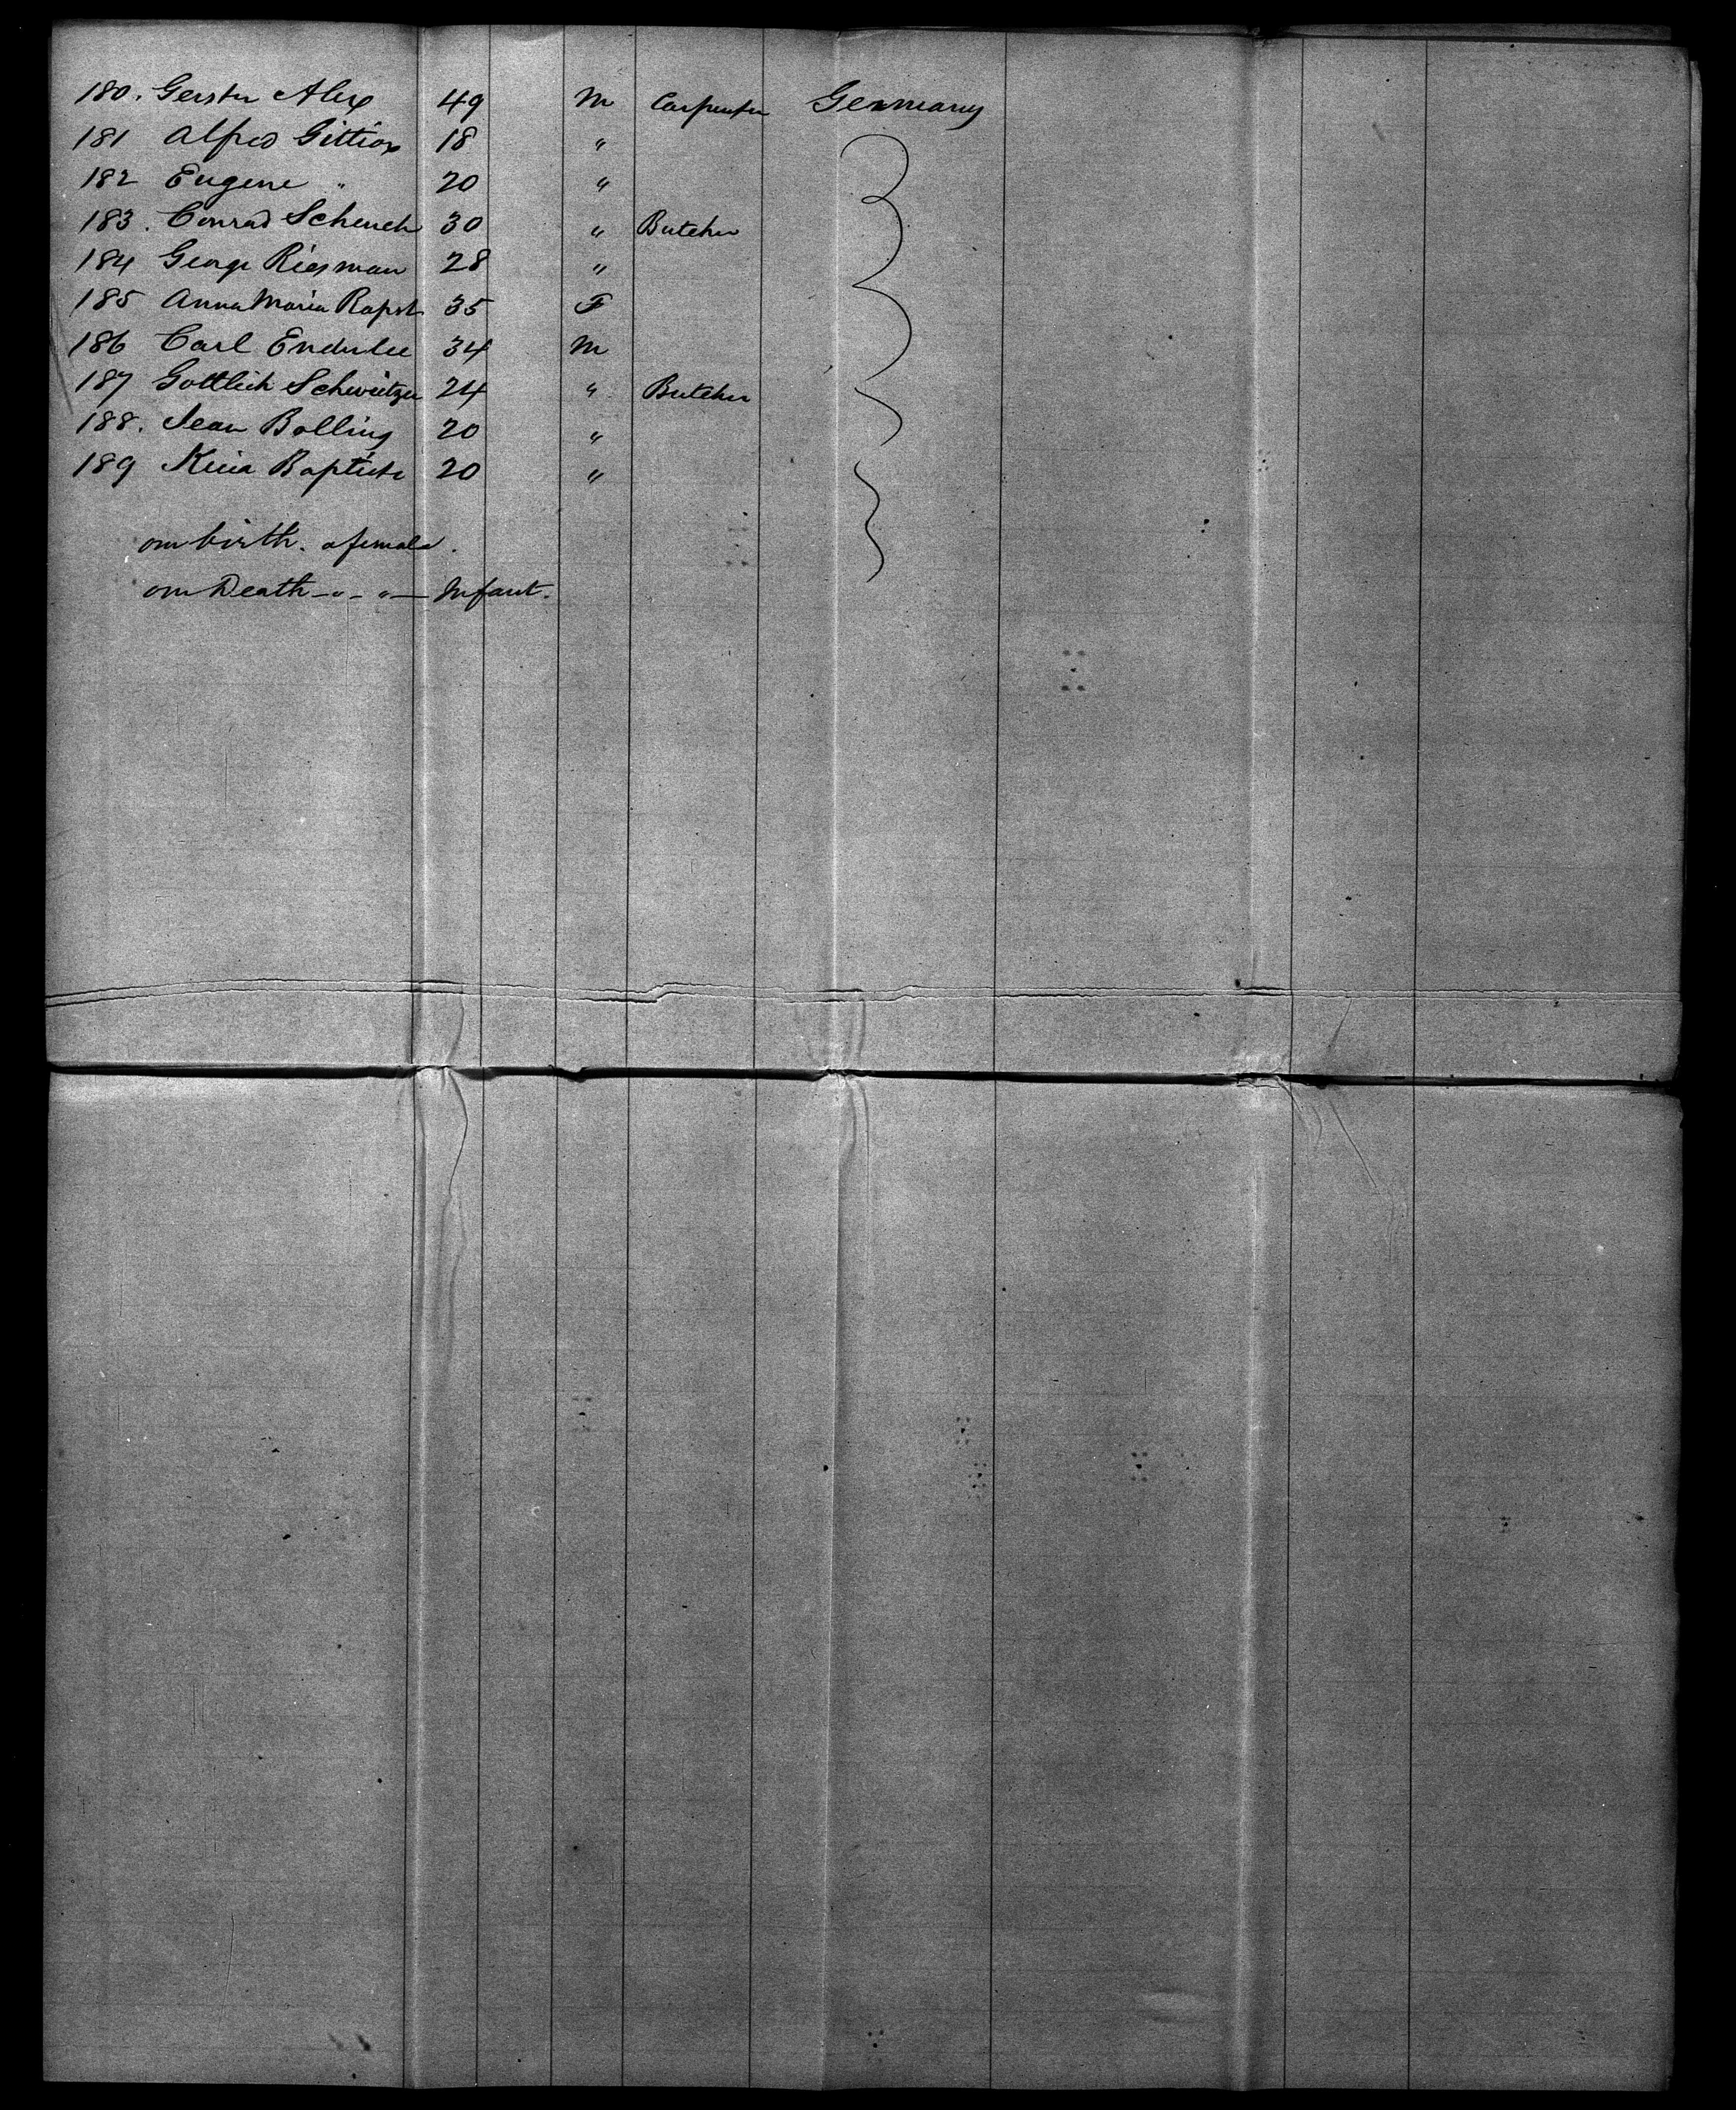 180. Gerster Alex 49 M Carpenter Germany
181 Alfred Gittiox 18 "
182 Eugene " 20 "
183. Conrad Schench 30 " Butcher
184 George Riesman 28 "
185 Anna Maria Rapst 35 F
186 Carl Enderlee 34 M
187 Gottlieb Schwietzer 24 " Butcher
188. Jean Bolling 20 "
189 Baptiste 20 "
one birth. a female.
one Death -"- "- Infant.